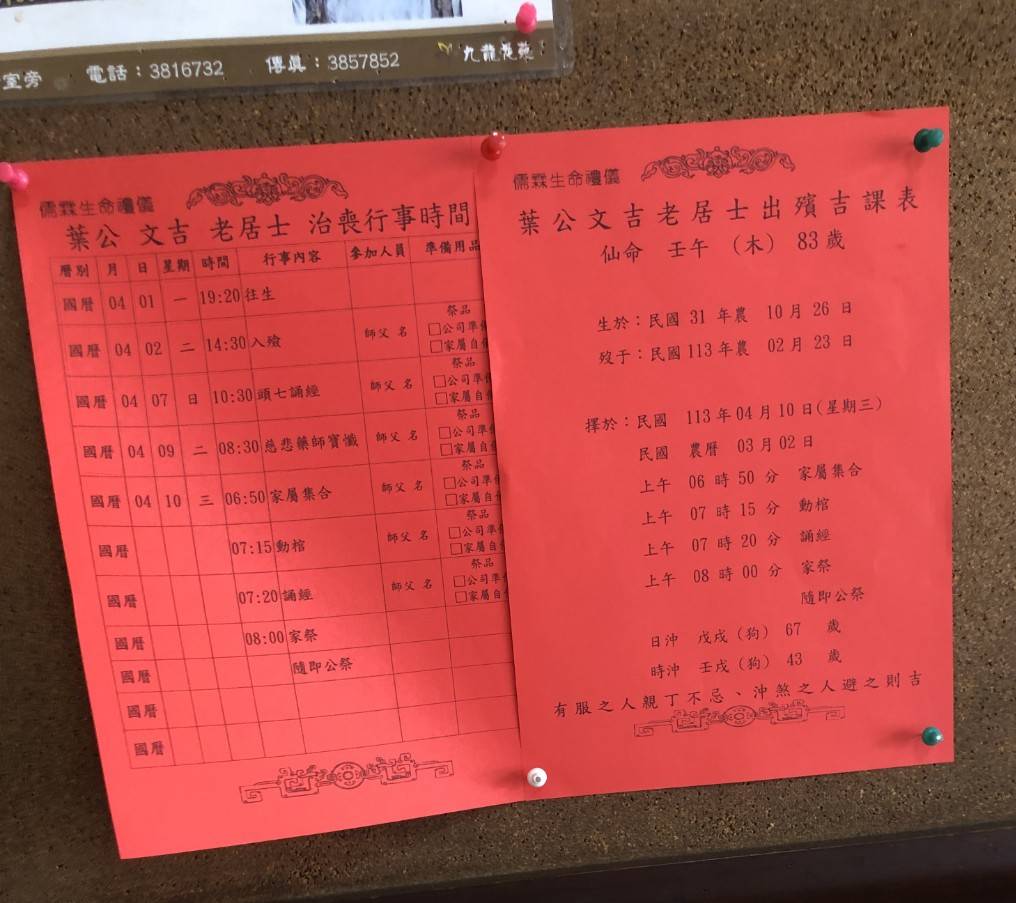 室旁 電話：3816732 傳真：3857852 九龍花苑
儒霖生命禮儀
葉公 文吉 老居士 治喪行事時間
曆別 月 日 星期 時間 行事內容 參加人員 準備用品
國曆 04 01 一 19:20 往生
國曆 04 02 二 14:30 入殮 師父 名 祭品 □公司準備 □家屬自
國曆 04 07 日 10:30 頭七誦經 師父 名 祭品 □公司準 □家屬自
國曆 04 09 二 08:30 慈悲藥師寶懺 師父 名 祭品 □公司準 □家屬自
國曆 04 10 三 06:50 家屬集合 師父 名 祭品 □公司準 □家屬自
國曆 07:15 動棺 師父 名 祭品 □公司準 □家屬自
國曆 07:20 誦經 師父 名 祭品 □公司準 □家屬自
國曆 08:00 家祭
國曆 隨即公祭
國曆
國曆
儒霖生命禮儀
葉公文吉老居士出殯吉課表
仙命 壬午 (木) 83歲
生於：民國 31 年農 10 月 26 日
歿于：民國 113 年農 02 月 23 日
擇於：民國 113 年 04 月 10 日(星期三)
民國 農曆 03 月 02 日
上午 06 時 50 分 家屬集合
上午 07 時 15 分 動棺
上午 07 時 20 分 誦經
上午 08 時 00 分 家祭
隨即公祭
日沖 戊戌 (狗) 67 歲
時沖 壬戌 (狗) 43 歲
有服之人親丁不忌、沖煞之人避之則吉